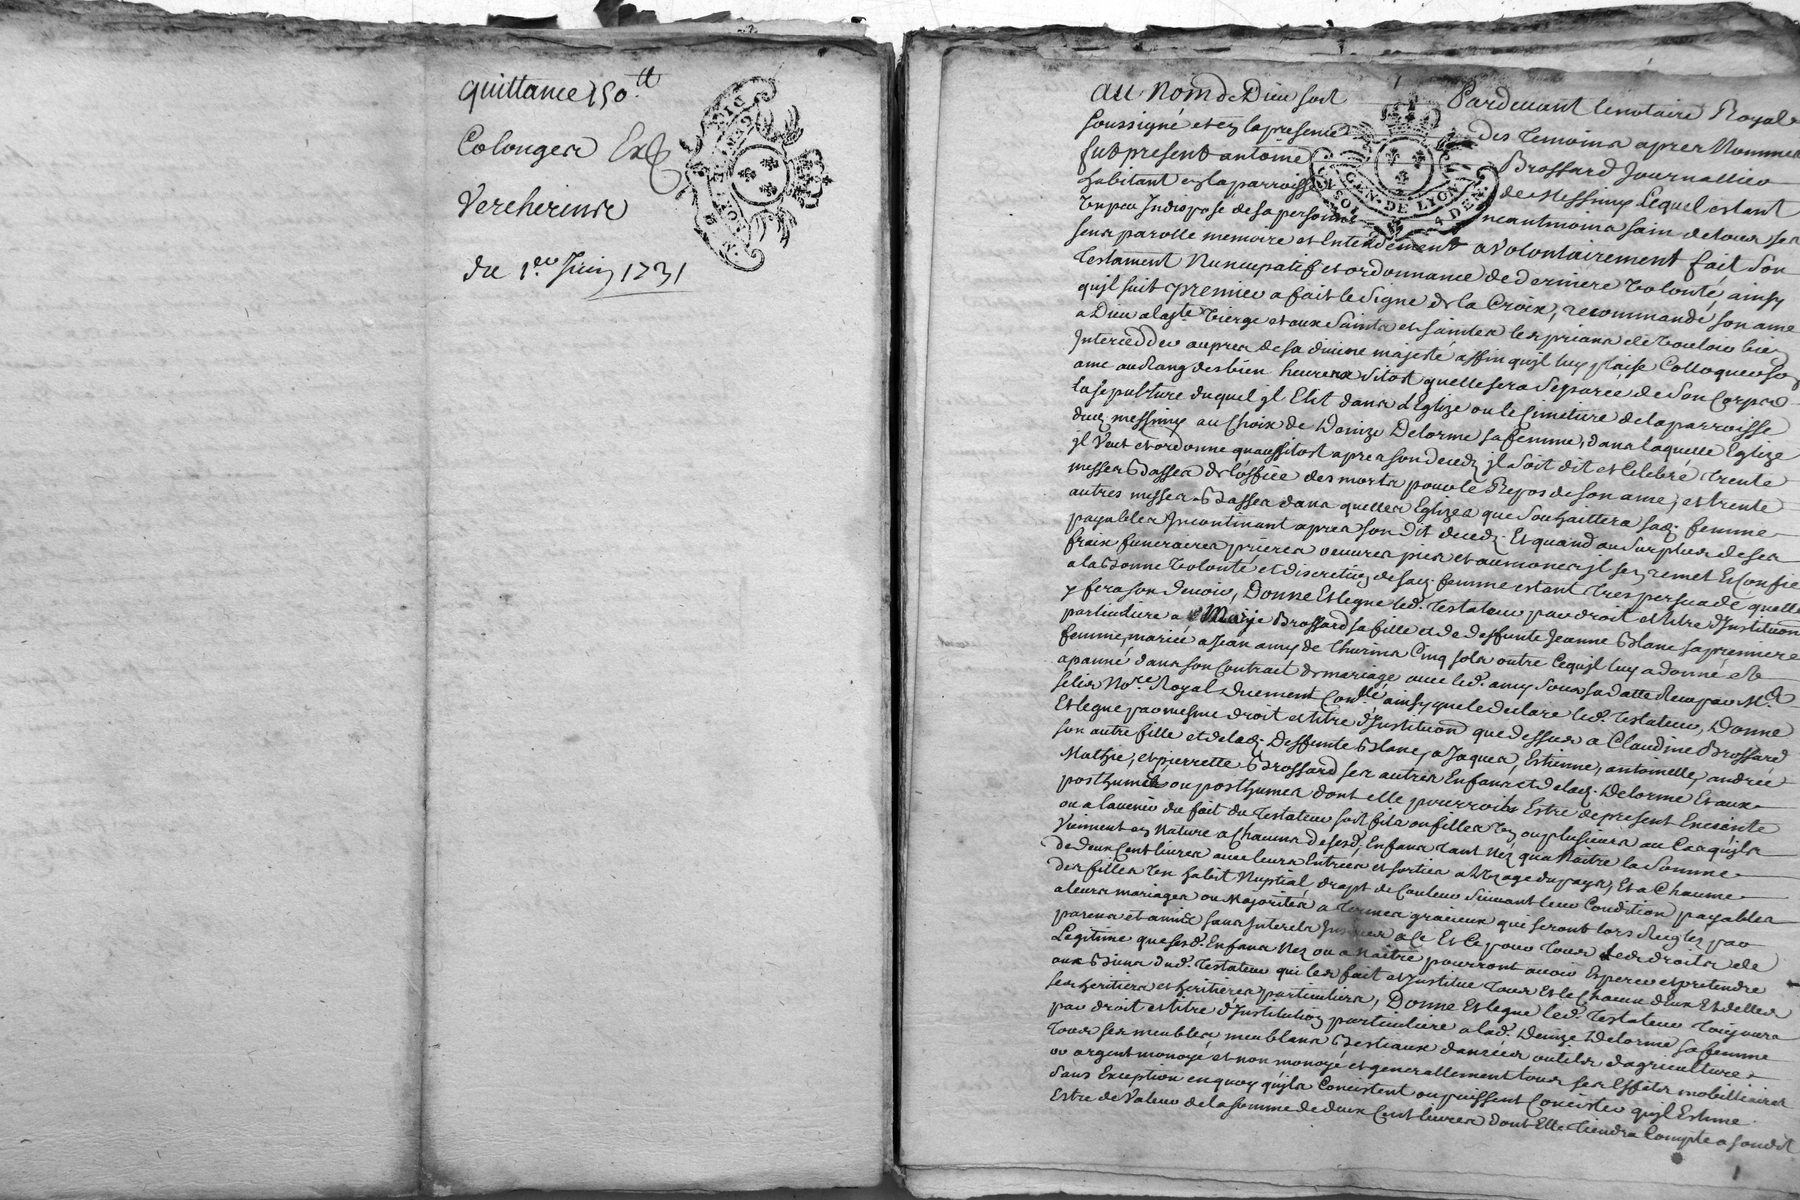 quittance 150 ₶
Colonger Exp
Vercherine
du 1.er Juin 1731
GEN. DE LION
au Nom de Dieu soit Pardevant le notaire Royal
soussigné et en la presence des temoins apres Nommes
fut present antoine Brossard Journallier
habitant en la parroisse de Messimy Lequel estant
un peu Indispose de sa personne neantmoins sain de tous ses
sens parolle memoire et Entendement a volontairement fait son
Testament Nuncupatif et ordonnance de derniere volonté ainsy
qu'jl suit premier a fait le signe de la Croix, recommandé son ame
a Dieu a la ste Vierge et aux Saints et saintes les priant de vouloir bien
Interceder aupres de sa divine majesté affin qu'jl luy plaise Colloquer son
ame au Rang des bien heureux sitost quelle sera separée de son Corps
la sepulture duquel jl Elit dans L'Eglize ou le Cimetiere de la parroisse
dud. messimy au Choix de Denize Delorme sa femme, dans laquelle Eglize
jl Veut et ordonne quaussitost apres son decedz jl soit dit et Celebré trente
messes Basses de l'office des morts pour le Repos de son ame, et trente
autres messes Basses dans quelles Eglizes que souhaittera sad. femme
payables Incontinant apres son dit decedz. Et quand au surplus de ses
fraix funeraires prieres oeuvres pies et aumones jl s'en remet Et Confie
a la Bonne volonté et discretion de sad. femme estant tres persuadé quelle
y fera son devoir, Donne Et legue led. testateur par droit et titre d'Institution
particuliere a Marie Brossard sa fille et de deffunte Jeanne Blanc sa premiere
femme, mariée a Jean amy de thurins Cinq sols outre Ce qu'jl luy a donné et
apanné dans son Contrait de mariage avec led. amy sous sa datte Receu par Me
felix No.re Royal, duement Con.llé ainsy que le declare led. testateur, Donne
Et legue par mesme droit et titre d'Institution que dessus a Claudine Brossard
son autre fille et de lad. Deffunte Blanc, a Jaques, Estienne, antoinette, andrée
Mathye, et pierrette Brossard ses autres Enfans et de lad. Delorme Et aux
posthume ou posthumes dont elle pourroit Estre de present Enceinte
ou a lavenir du fait du testateur soit fils ou filles un ou plusieurs au Cas qu'jls
Viennent en Nature a Chacun de sesd. Enfans tant Nez qua Naitre la somme
de deux Cent livres avec leurs Entrées et sorties a L'uzage du pays, Et a Chacune
des filles un habit Nuptial drapt de Couleur suivant leur Condition payables
a leurs mariages ou Majorités a termes gracieux qui seront lors Reglez par
parens et amis sans Interets Jusques a Ce Et Ce pour tous les droits de
Legitime que sesd. Enfans Nez ou a Naitre pourront avoir Esperer et pretendre
aux Biens dud. testateur qui les fait et Institue tous Et le Chacun d'Eux Et d'elles
ses heritiers et heritieres particuliers, Donne Et legue led. testateur toujours
par droit et titre d'Institution particuliere a lad. Denize Delorme sa femme
tous ses meubles meublans Bestiaux danrées outils d'agriculture
or argent monoyé et non monoyé et generallement tous ses Effets mobilliaires
sans Exception en quoy qu'jls Concistent ou puissent Concister qu'jl Estime
Estre de Valeur de la somme de deux Cent livres dont Elle tiendra Compte a son dit